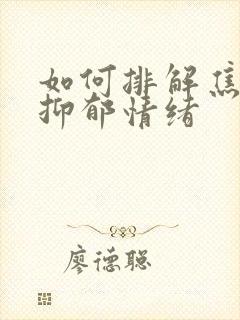 如何排解焦
抑郁情绪
廖德聪